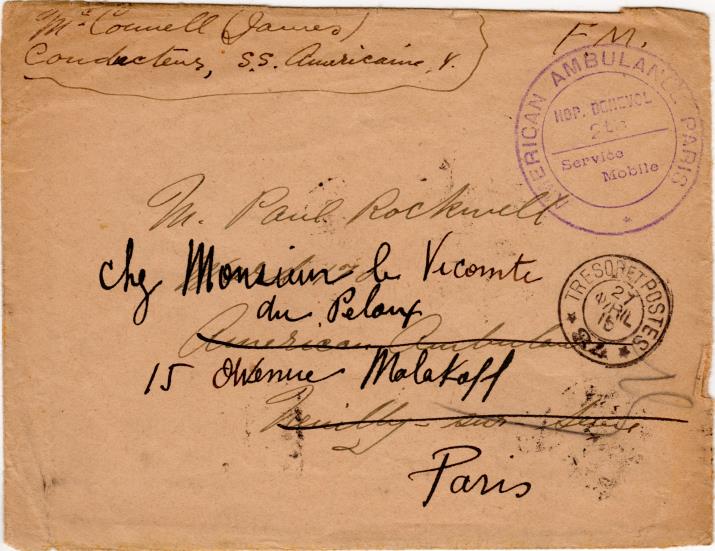 McConnell (James)
Conducteur, S.S. Américaine, Y.
F.M.
AMERICAN AMBULANCE PARIS
HOP. BENEVOL
2
Service
Mobile
M. Paul Rockwell
chez Monsieur le Vicomte
du Peloux
American Ambulance
15 Avenue Malakoff
Neuilly-sur-Seine
Paris
TRESOR ET POSTES
27
AVRIL
15